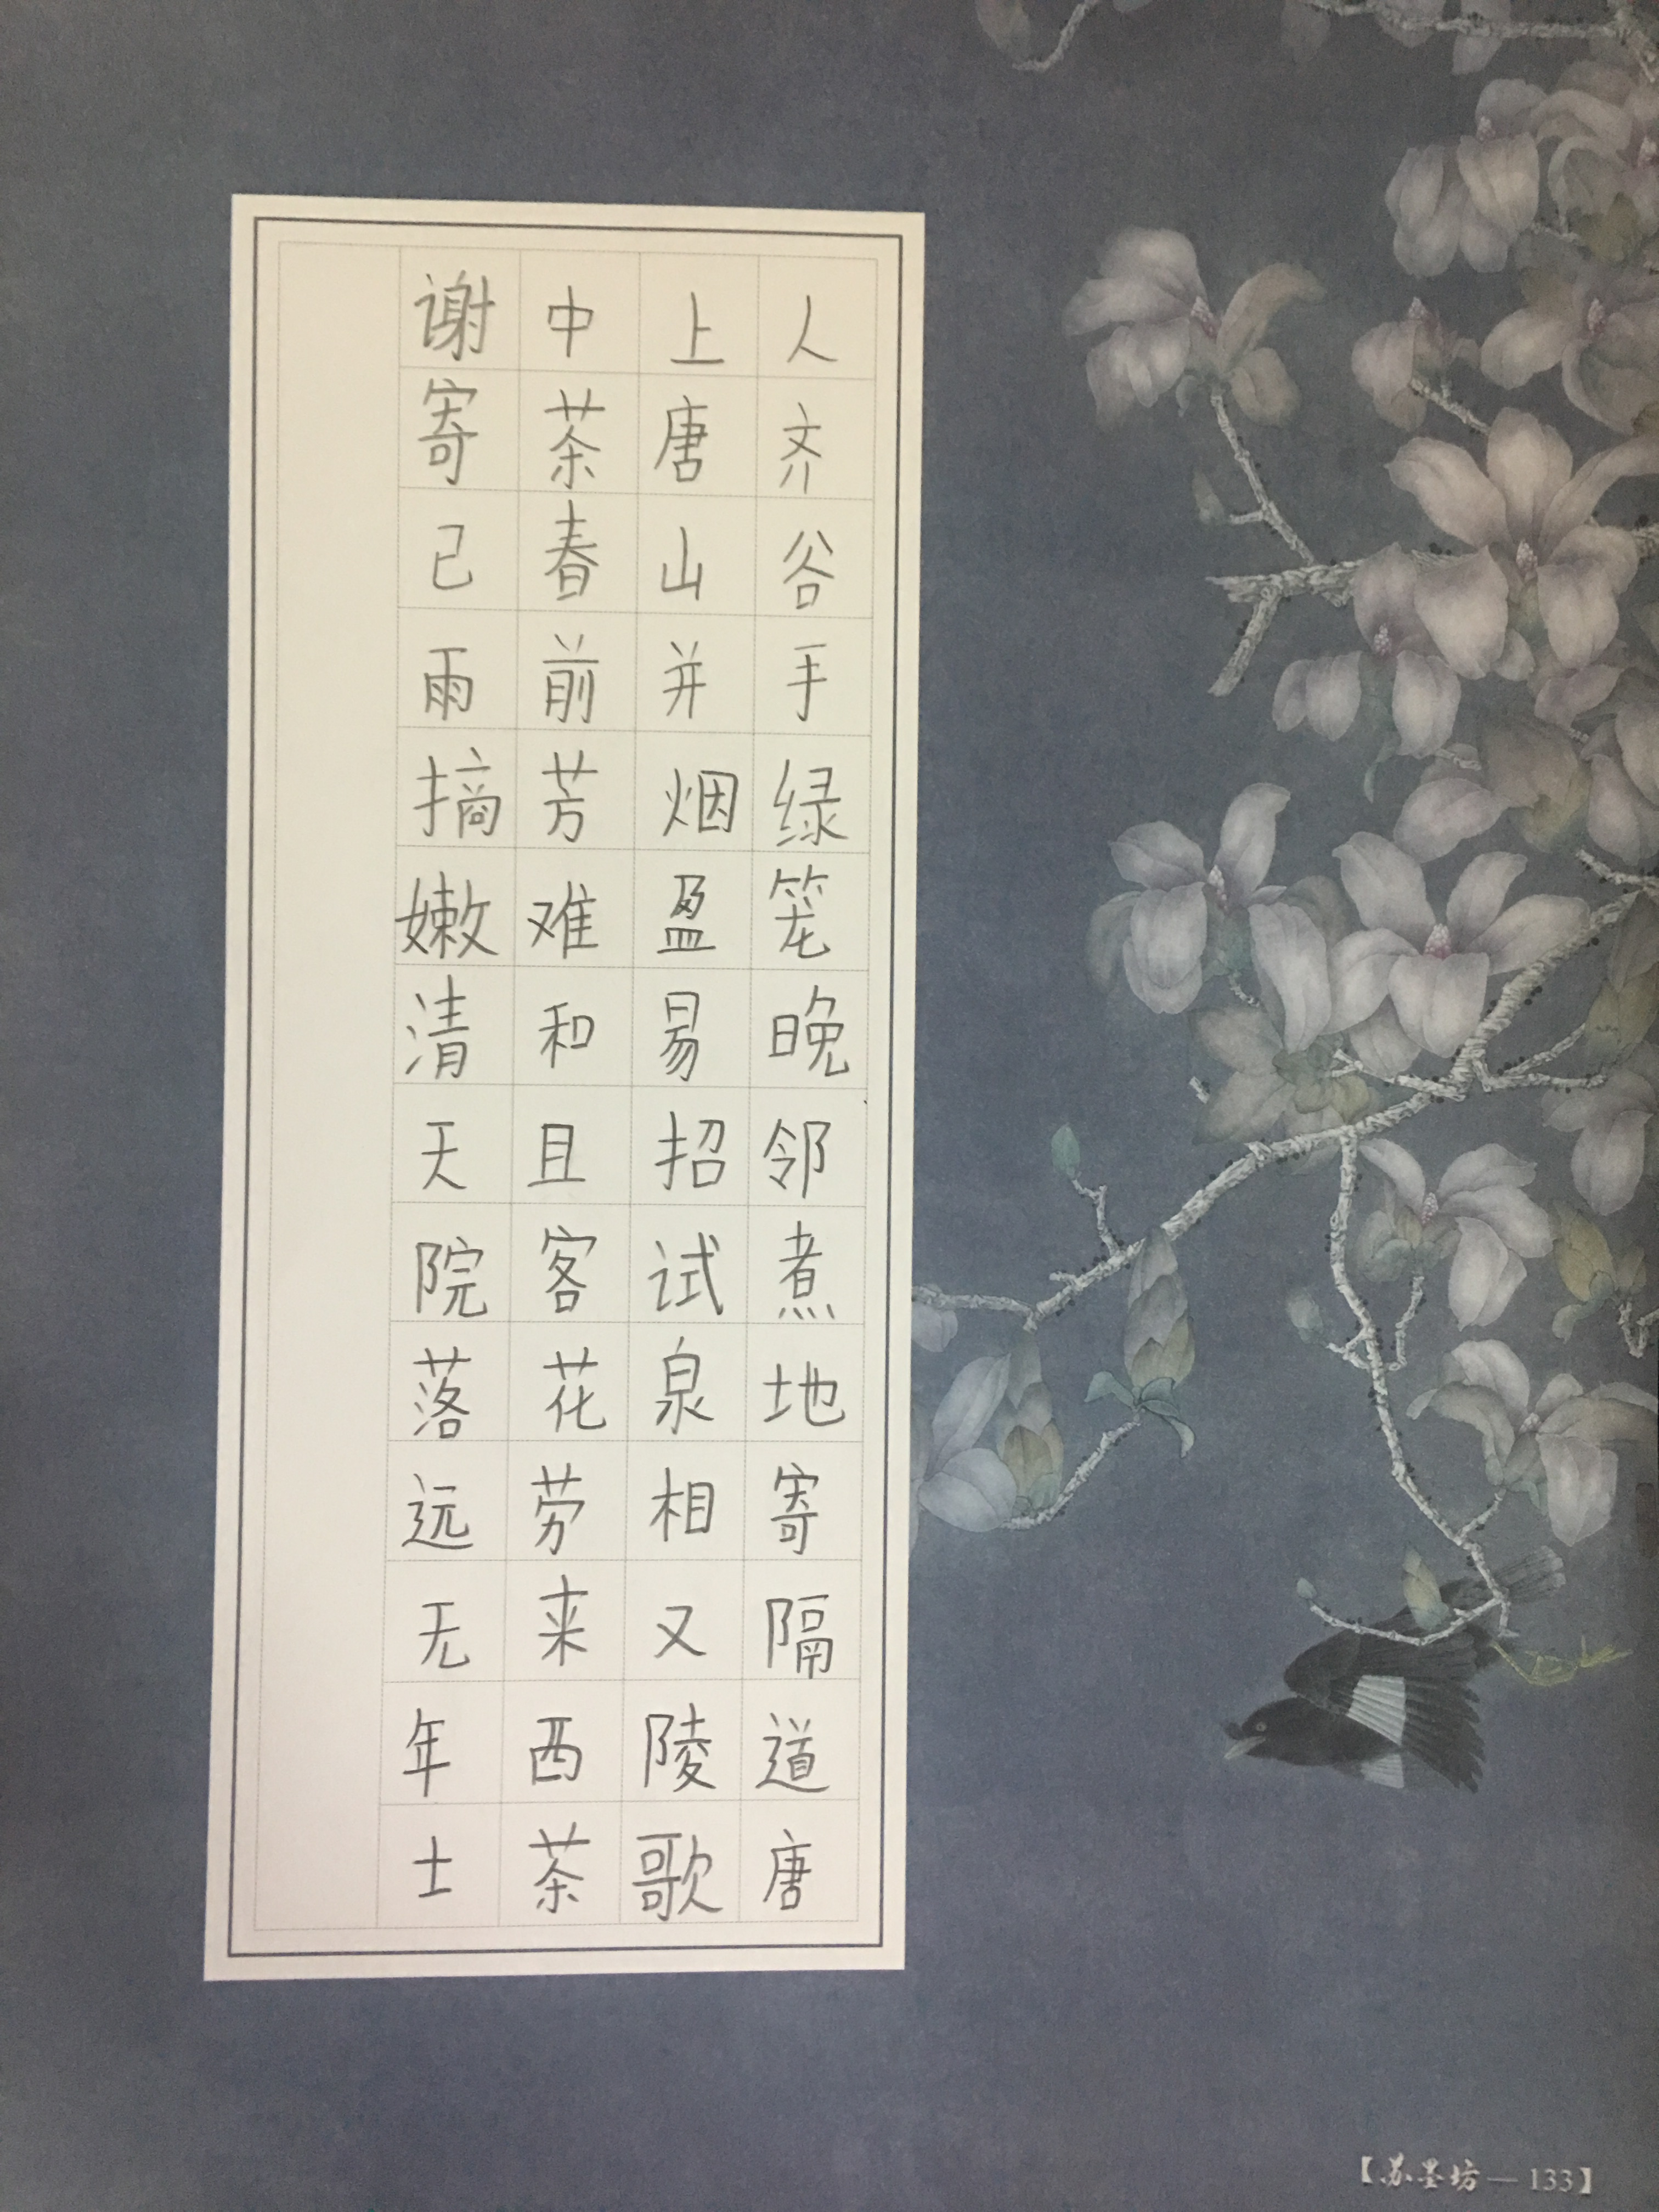 人齐谷手绿笼晚邻煮地寄隔道唐
上唐山并烟盈易招试泉相又陵歌
中茶春前芳难和且客花劳来西茶
谢寄已雨摘嫩清天院落远无年士
【苏墨坊—133】